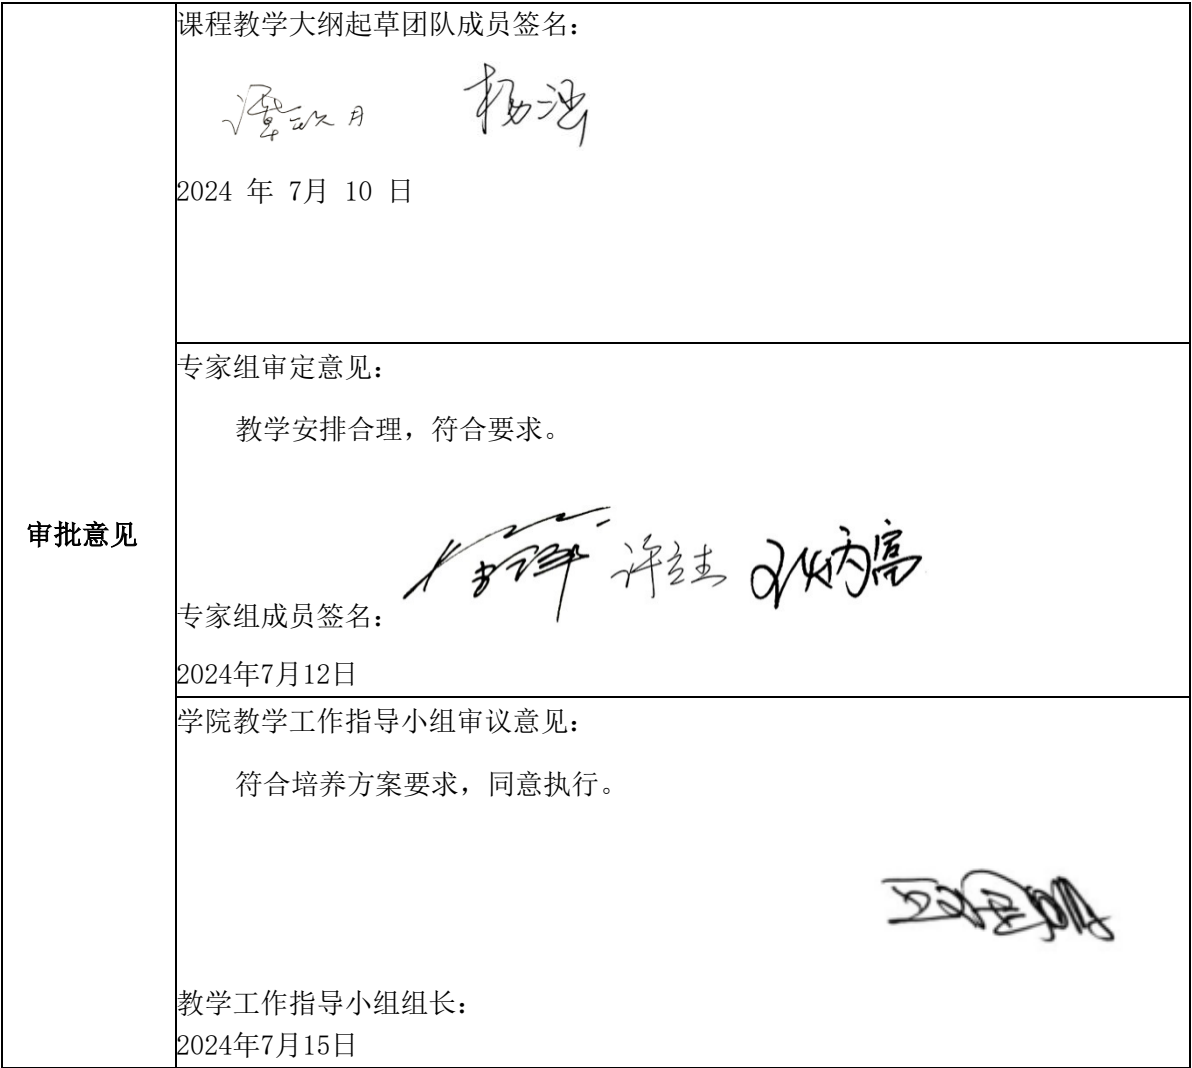 课程教学大纲起草团队成员签名:
2024 年 7月 10 日
专家组审定意见:
教学安排合理，符合要求。
审批意见
许立杰
专家组成员签名:
2024年7月12日
学院教学工作指导小组审议意见:
符合培养方案要求，同意执行。
教学工作指导小组组长:
2024年7月15日